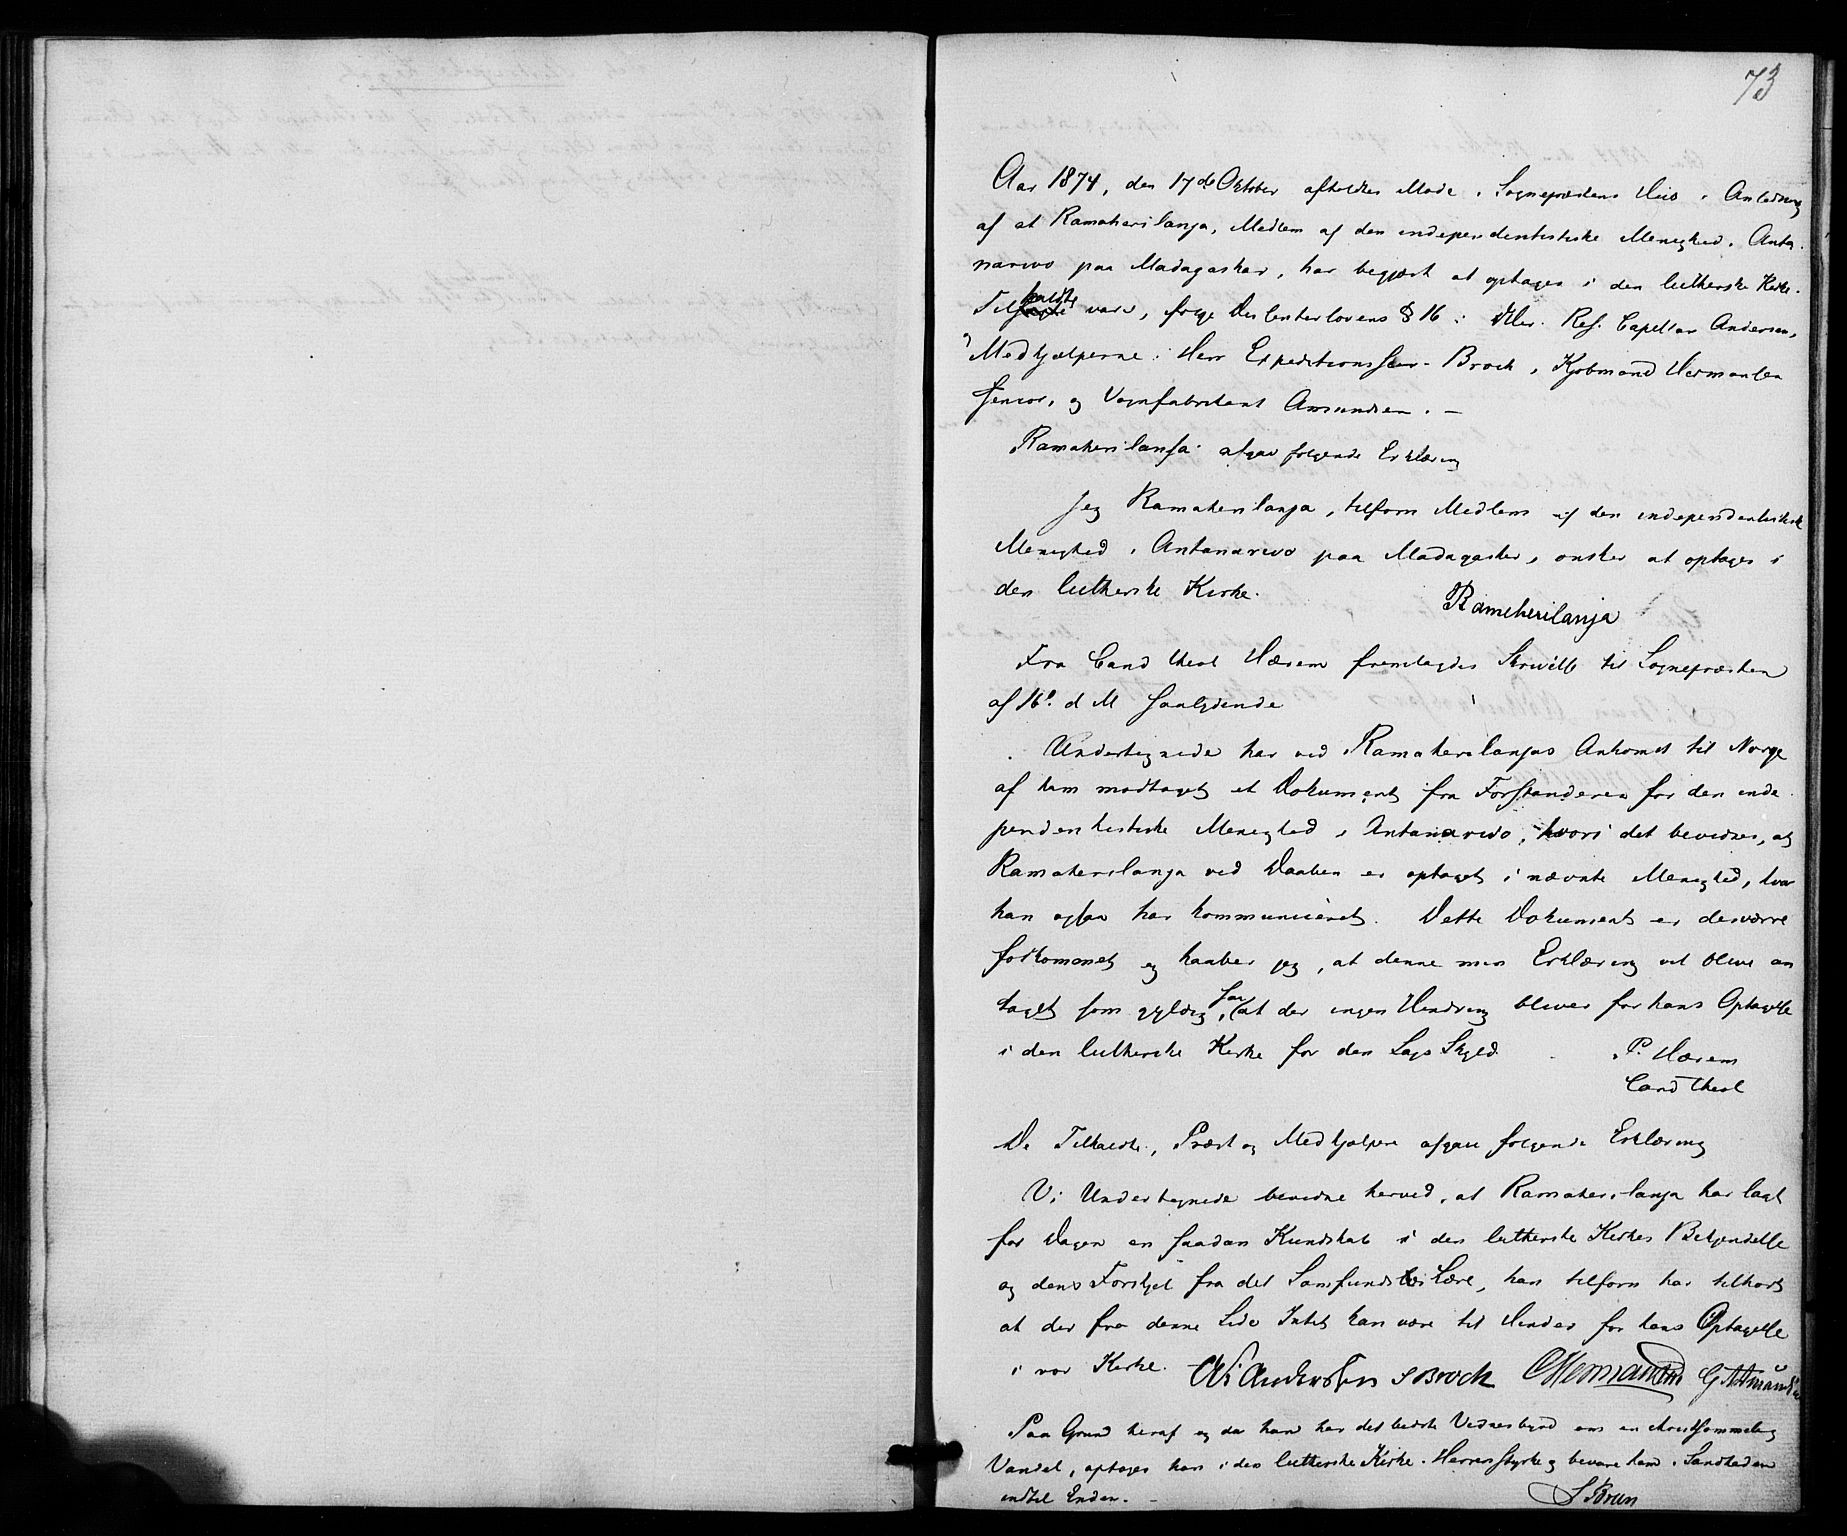 73
Aar 1874, den 17de Oktober afholdtes Møde i Sognepræstens Huus i Anledning
af at Ramaherilanja, Medlem af den independentistiske Menighed i Anta-
narivo paa Madagaskar, har begjært at optages i den lutherske Kirke.
Tilkaldte vare, ifølge Dissenterlovens § 16: Hr. Res. Capellan Andersen,
Medhjælperne: Herr Expeditionssecr. Brock, Kjøbmand Hermansen
senior, og Vognfabrikant Amundsen. —
Ramaherilanja afgav følgende Erklæring
Jeg Ramaherilanja, tilforn Medlem af den independentistiske
Menighed i Antanarivo paa Madagaskar, ønsker at optages i
den lutherske Kirke.
Ramaherilanja
Fra Cand theol Hærem fremlagdes Skrivelse til Sognepræsten
af 16d. d M saalydende
Undertegnede har ved Ramaherilanjas Ankomst til Norge
af ham modtaget et Dokument fra Forstanderen for den inde
pendentistiske Menighed i Antanarivo, hvori det bevidnes, at
Ramaherilanja ved Daaben er optaget i nævnte Menighed, hvor
han ogsaa har kommuniceret. Dette Dokument er desværre
forkommet og haaber jeg, at denne min Erklæring vil blive an
taget som gyldig, saa at der ingen Hindring bliver for hans Optagelse
i den lutherske Kirke for den Sags Skyld.
P. Hærem
Cand theol
De Tilkaldte, Præst og Medhjælpere afgav følgende Erklæring
Vi Undertegnede bevidne herved, at Ramaherilanja har lagt
for Dagen en saadan Kundskab i den lutherske Kirkes Bekjendelse
og dens Forskjel fra det Samfunds Lære, han tilforn har tilhørt
at der fra denne Side Intet kan være til Hinder for hans Optagelse
i vor Kirke. Chr Andersen S Brock C Hermansen G A Amundsen
Paa Grund heraf og da han har det bedste Vidnesbyrd om en christsømmelig
Vandel, optages han i den lutherske Kirke. Herren styrke og bevare ham i Sandheden
indtil Enden. —
S Brun